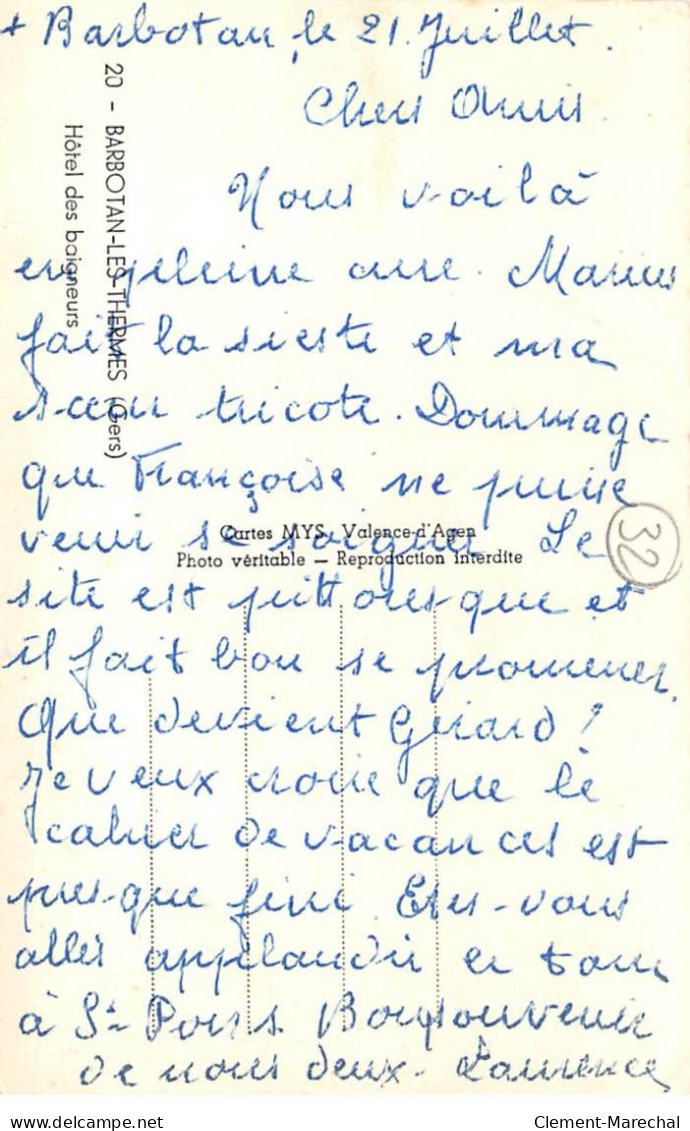 + Barbotan, le 21 Juillet.
20 - BARBOTAN-LES-THERMES (Gers)
Hôtel des baigneurs
Chers Amis
Nous voilà
en pleine cure. Marius
fait la sieste et ma
sœur tricote. Dommage
que Françoise ne puisse
venir se soigner Le
Cartes MYS, Valence-d'Agen
Photo véritable — Reproduction interdite
32
site est pittoresque et
il fait bon se promener.
Que devient Gérard ?
Je veux croire que le
cahier de vacances est
presque fini Etes-vous
allés applaudir le tour
à St Pons Bon souvenir
de nous deux. Laurence
Clement-Marechal